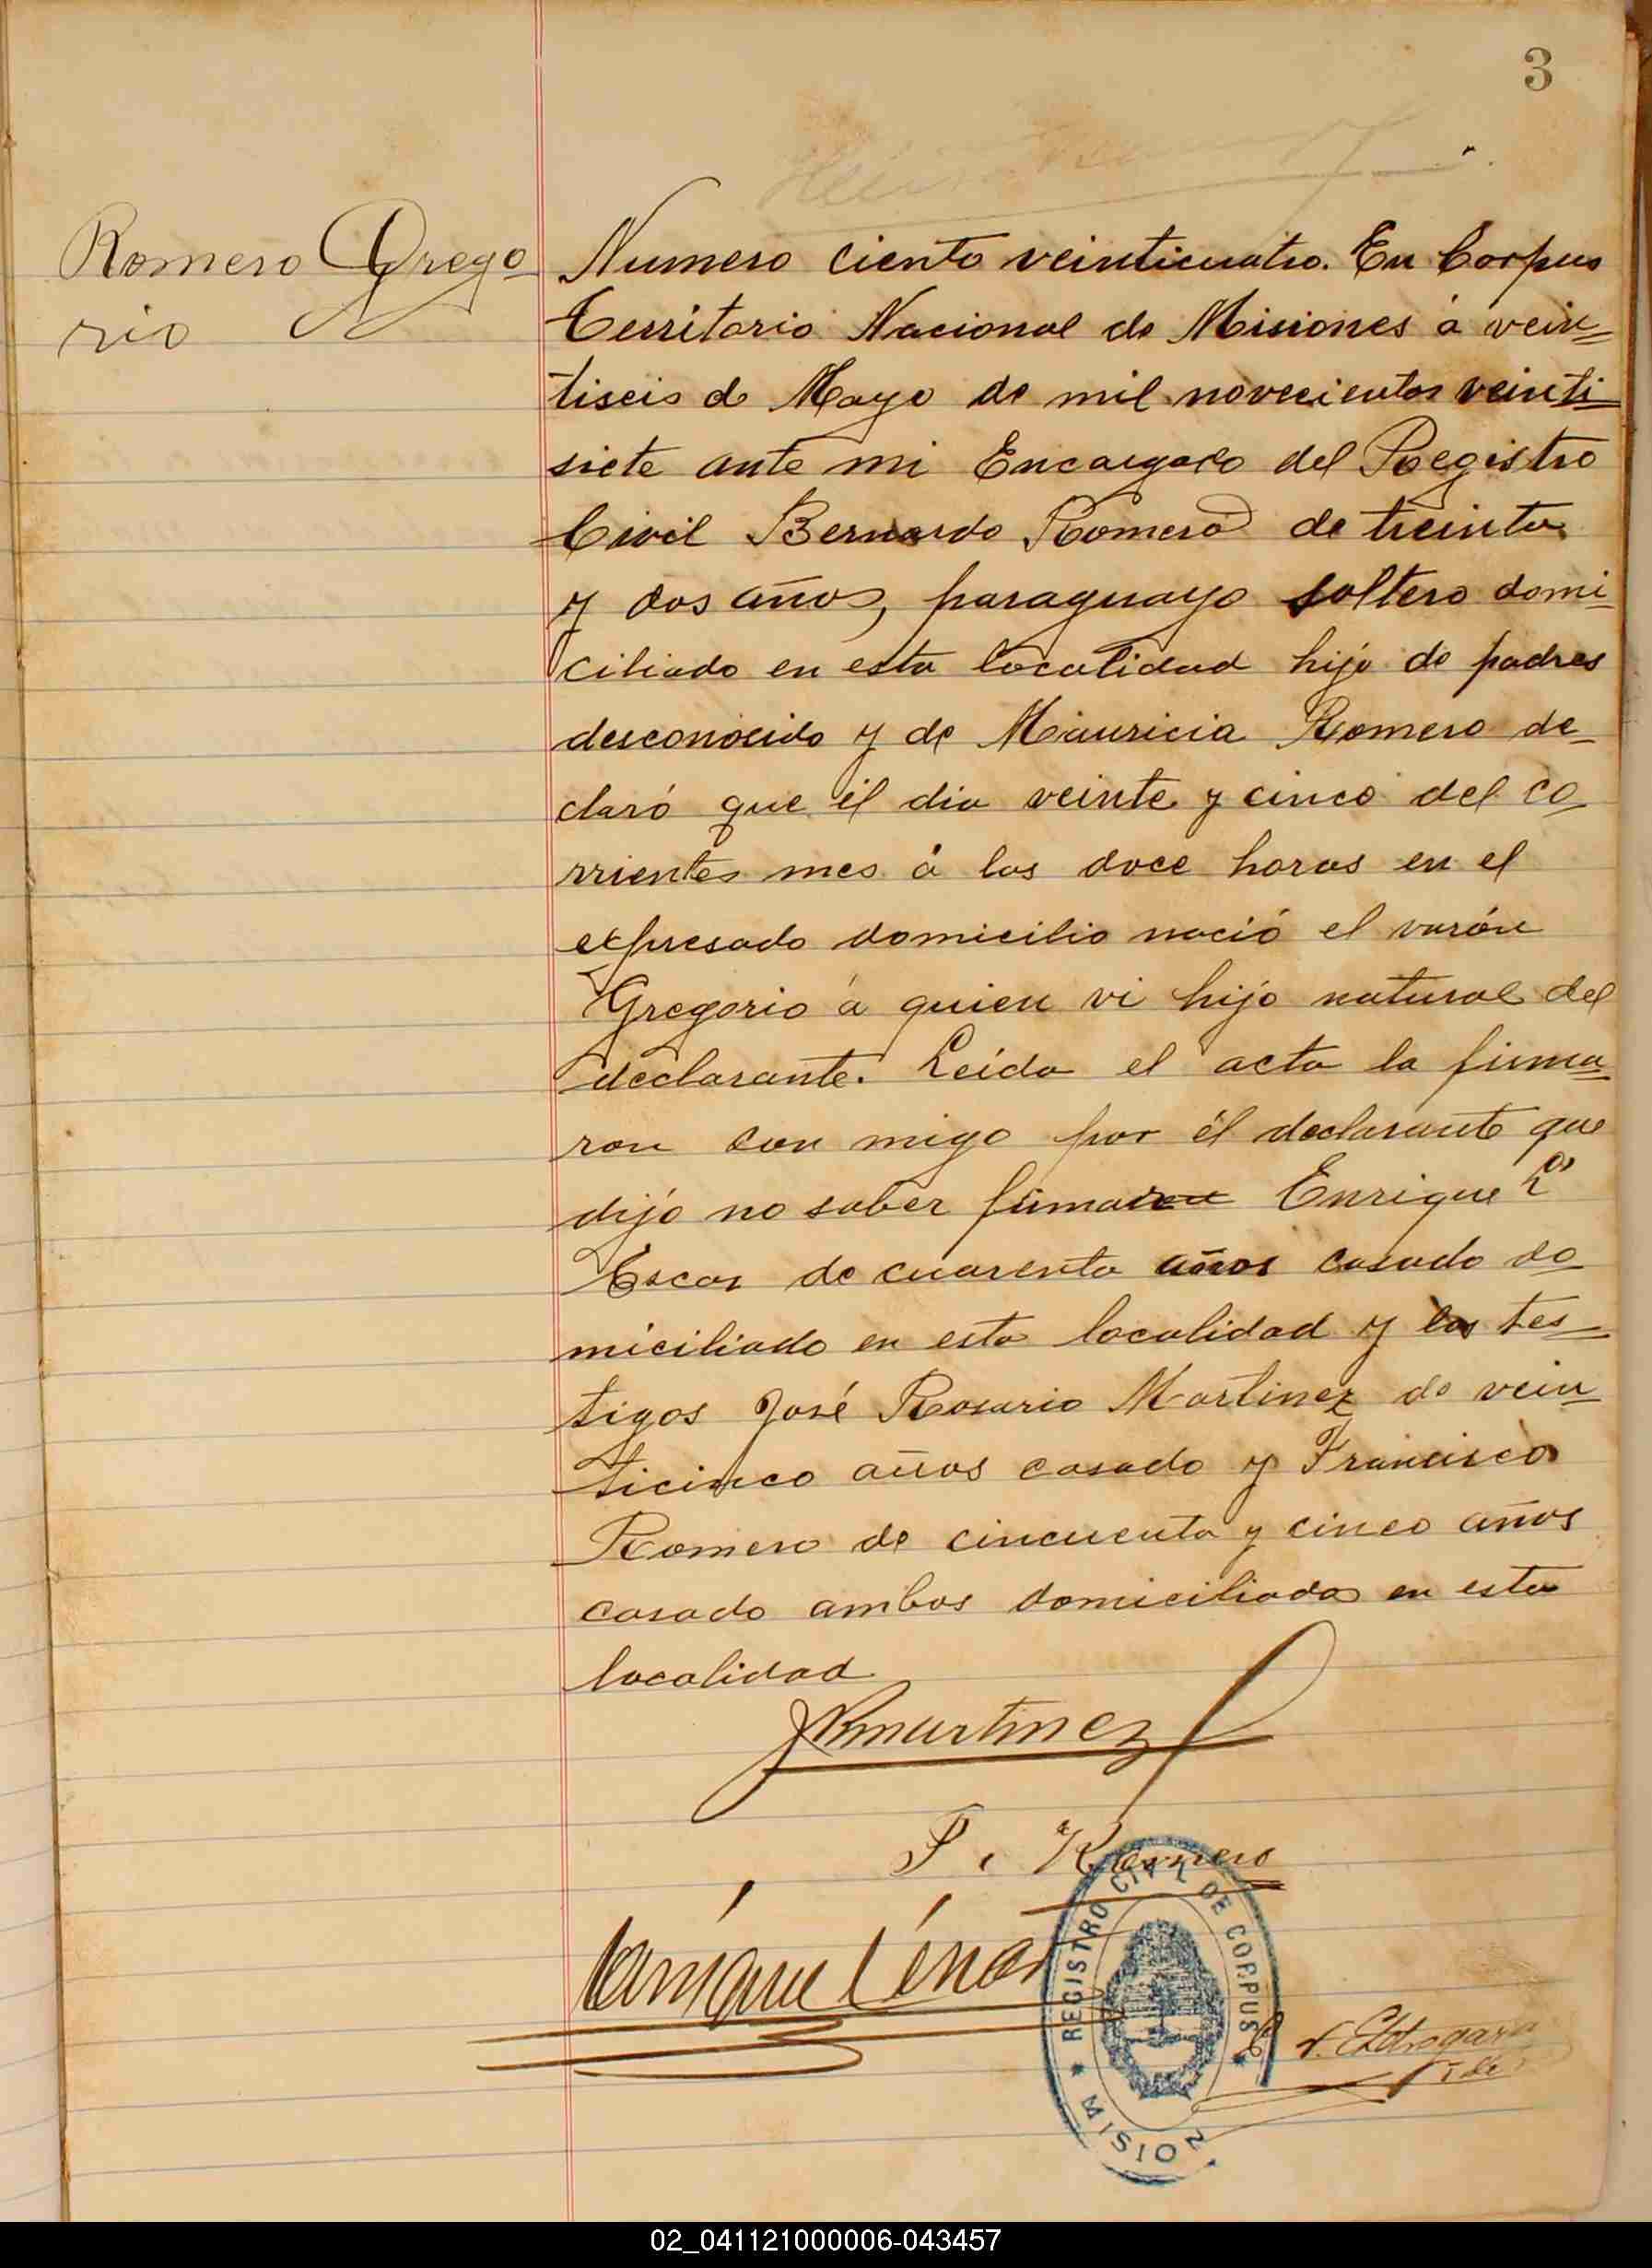 3
Romero Grego
rio
Numero ciento veinticuatro. En Corpus
Territorio Nacional de Misiones á vein=
tiseis de Mayo de mil novecientos veinti
siete ante mi Encargado del Registro
Civil Bernardo Romero de treinta
y dos años, paraguayo soltero domi
ciliado en esta localidad hijo de padres
desconocido y de Mauricia Romero de
claró que él dia veinte y cinco del co
rrientes mes á las doce horas en el
expresado domicilio nació el varón
Gregorio á quien vi hijo natural del
declarante. Leida el acta la firma
ron con migo por él declarante que
dijó no saber firmar Enrique
de cuarenta años casado do
miciliado en esta localidad y los tes
tigos José Rosario Martinez de vein
ticinco años casado y Francisco
Romero de cincuenta y cinco años
casado ambos domiciliados en esta
localidad
JRmartinez
F. Romero
Enrique
REGISTRO CIVIL DE CORPUS
MISION
02_041121000006-043457